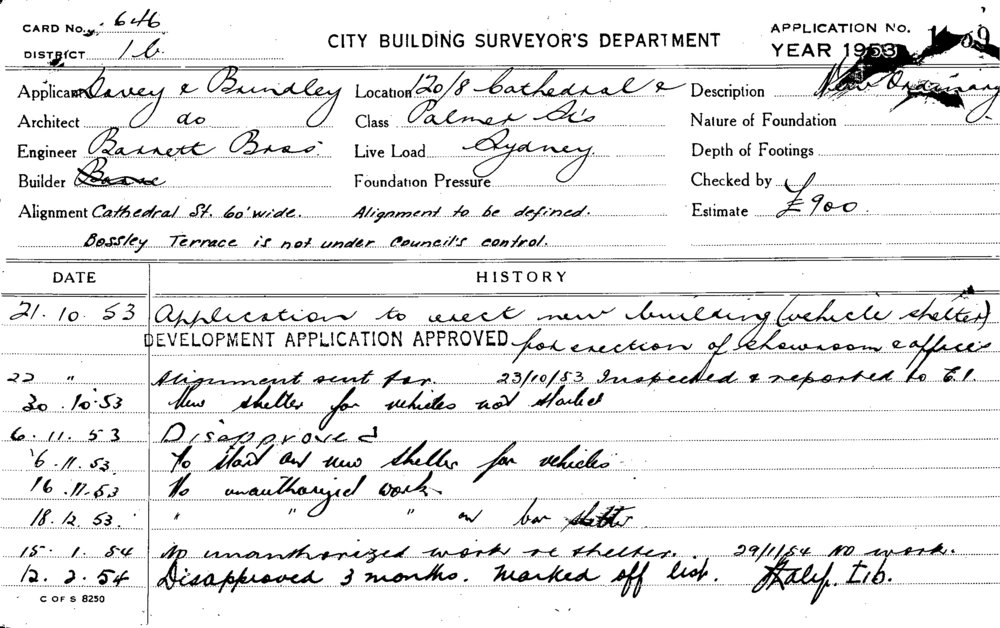 CARD No. 646
DISTRICT 1b
CITY BUILDING SURVEYOR'S DEPARTMENT
APPLICATION No.
YEAR 1953
Applicant Davey & Brindley Location 120/8 Cathedral & Description New Ordinary
Architect do Class Palmer Sts Nature of Foundation
Engineer Barnett Bros. Live Load Sydney Depth of Footings
Builder Foundation Pressure Checked by
Alignment Cathedral St. 60' wide. Alignment to be defined. Estimate £900.
Bossley Terrace is not under Council's control.
DATE HISTORY
21.10.53 Application to erect new building (vehicle shelter)
DEVELOPMENT APPLICATION APPROVED for erection of showroom & offices
22 " Alignment sent for. 23/10/53 Inspected & reported to C.I.
30.10.53 New shelter for vehicles not started
6.11.53 Disapproved
16.11.53 No start on new shelter for vehicles
16.11.53 No unauthorized work
18.12.53. " " " on
15.1.54 No unauthorized work re shelter. 29/1/54 No work.
12.2.54 Disapproved 3 months. Marked off list.
C OF S 8250